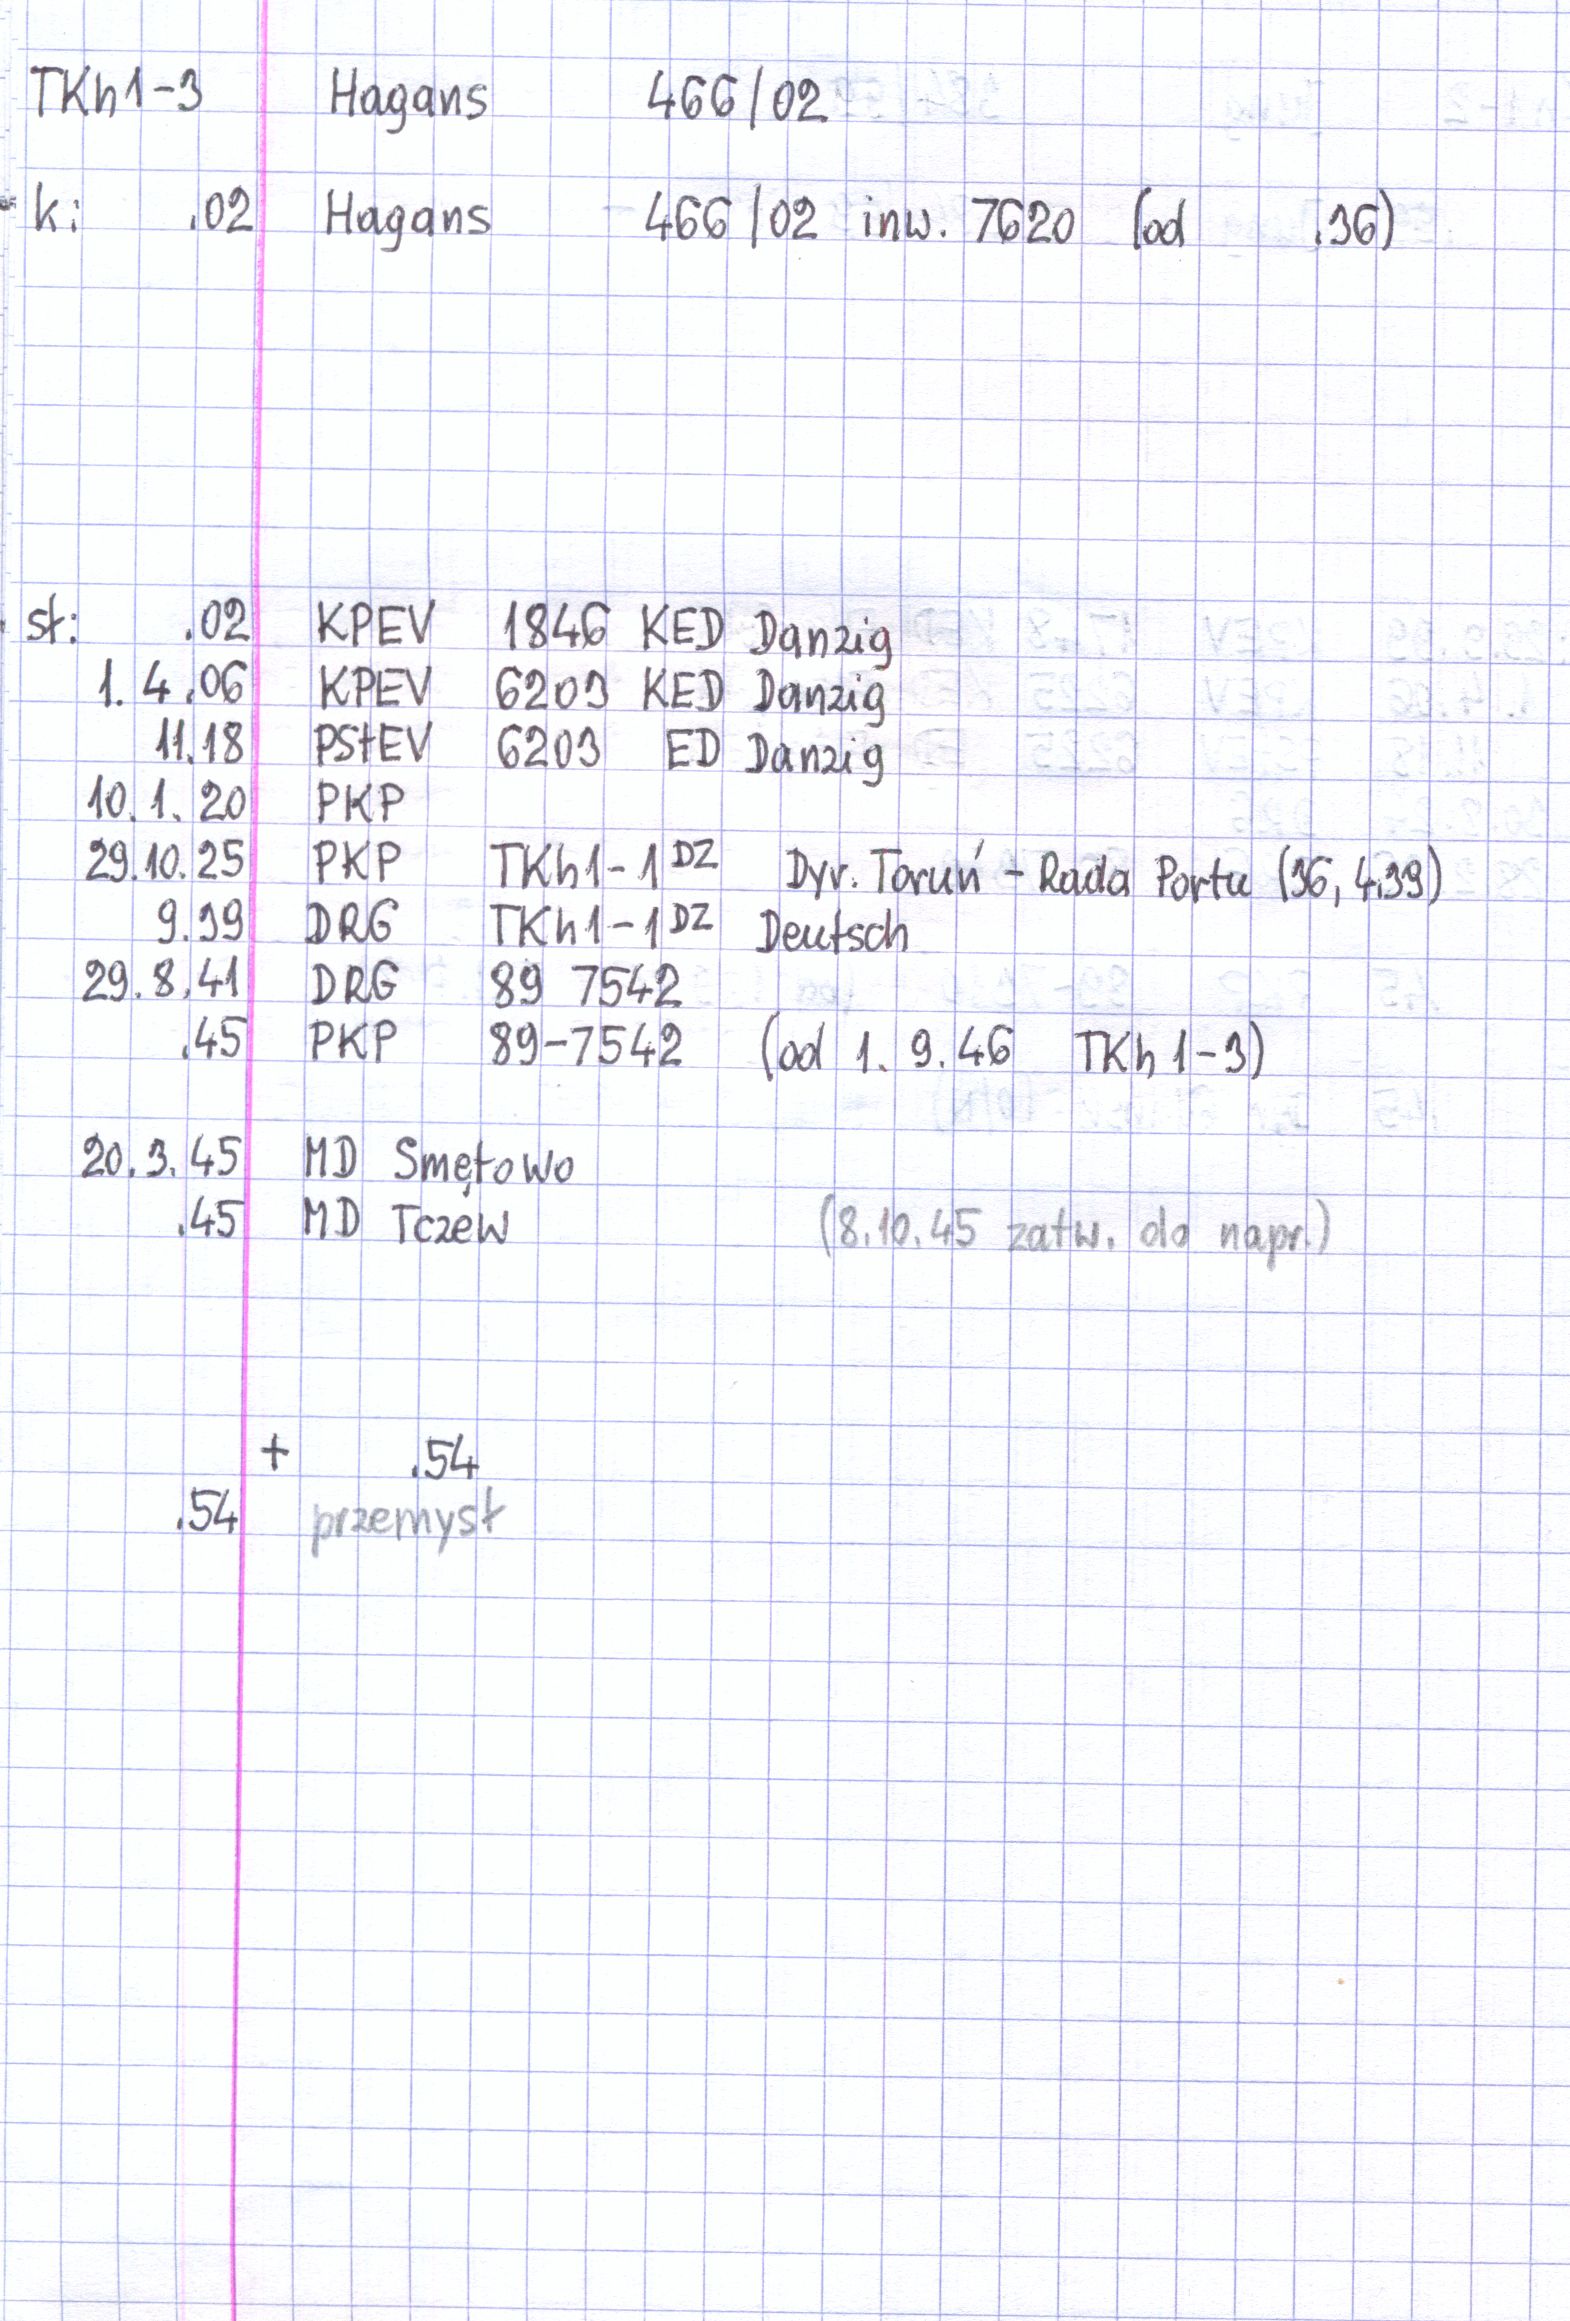 TKh1-3 Hagans 466/02
k: .02 Hagans 466/02 inw. 7620 (od .36)
st: .02 KPEV 1846 KED Danzig
1.4.06 KPEV 6203 KED Danzig
11.18 PStEV 6203 ED Danzig
10.1.20 PKP
29.10.25 PKP TKh1-1DZ Dyr. Toruń - Rada Portu (36, 4.39)
9.39 DRG TKh1-1DZ Deutsch
29.8.41 DRG 89 7542
.45 PKP 89-7542 (od 1.9.46 TKh1-3)
20.3.45 MD Smętowo
.45 MD Tczew (8.10.45 zatw. do napr.)
+ .54
.54 przemysł